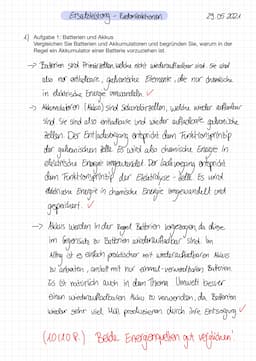 Ersatzleistung - Redoxreaktionen 29.05.2021
1) Aufgabe 1: Batterien und Akkus
Vergleichen Sie Batterien und Akkumulatoren und begründen Sie, warum in der
Regel ein Akkumulator einer Batterie vorzuziehen ist.
→ Batterien sind Primärzellen, welche nicht wiederaufladbar sind. Sie sind
also nur entladbare, galvanische Elemente, die nur chemische
in elektrische Energie umwandeln. ✓
→ Akkumulatoren (Akkus) sind Sekundärzellen, welche wieder aufladbar
sind. Sie sind also entladbare und wieder aufladbare galvanische
Zellen. Der Entladevorgang entspricht dem Funktionsprinzip
der galvanischen Zelle. Es wird also chemische Energie in
elektrische Energie umgewandelt. Der Ladevorgang entspricht
dem Funktionsprinzip der Elektrolyse-Zelle. Es wird
elektrische Energie in chemische Energie umgewandelt und
gespeichert. ✓
→ Akkus werden in der Regel Batterien vorgezogen, da diese
im Gegensatz zu Batterien wiederaufladbar sind. Im
Alltag ist es einfach praktischer mit wiederaufladbaren Akkus
zu arbeiten, anstatt mit nur einmal-verwendbaren Batterien.
Es ist natürlich auch in dem Thema Umwelt besser
einen wiederaufladbaren Akku zu verwenden, da Batterien
wieder sehr viel Müll produzieren durch ihre Entsorgung. ✓
(10/10 P.) Beide Energiequellen gut verglichen!